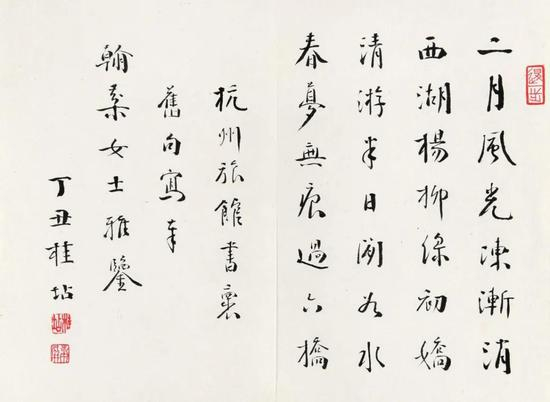 二月風光凍漸消
西湖楊柳綠初嬌
清游半日閒如水
春夢無痕過六橋
杭州旅館書褱
舊句寫奉
翰素女士雅鑒
丁丑桂坫